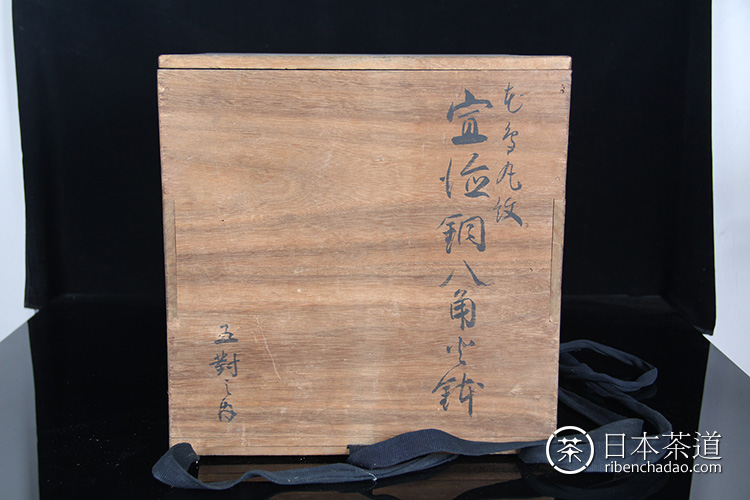 花鳥丸紋
宣徳銅八角火鉢
五對之内
茶 日本茶道
ribenchadao.com